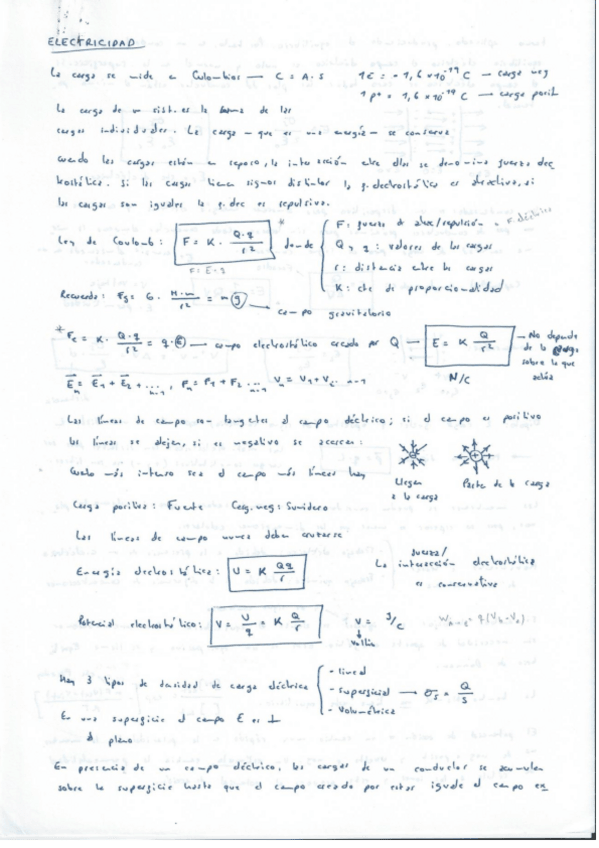 ELECTRICIDAD
La carga se mide en Culombios — C = A·s   1e⁻ = -1,6×10⁻¹⁹ C → carga neg
1p⁺ = 1,6×10⁻¹⁹ C → carga posit
La carga de un sist. es la suma de las
cargas individuales. La carga - que es una energía - se conserva
Cuando las cargas están en reposo, la interacción entre ellas se denomina fuerza elec
trostática. Si las cargas tienen signos distintos la f. electrostática es atractiva, si
las cargas son iguales la f. elec es repulsiva.
Ley de Coulomb: F = K · Q·q / r² * donde
F = E·q
F: fuerza de atrac/repulsión = F. eléctrica
Q, q: valores de las cargas
r: distancia entre las cargas
K: cte de proporcionalidad
Recuerda: Fg = G · M·m / r² = m g → campo gravitatorio
* Fe = K · Q·q / r² = q · E → campo electrostático creado por Q — E = K Q / r² → No depende de la carga sobre la que actúa
N/C
Las líneas de campo son tangentes al campo eléctrico; si el campo es positivo
las líneas se alejan, si es negativo se acercan:
Cuanto más intenso sea el campo más líneas hay
Llegan a la carga
Parte de la carga
Carga positiva: Fuente   Carg. neg: Sumidero
Las líneas de campo nunca deben cruzarse
Energía electrostática: U = K Qq / r
La fuerza/ interacción electrostática es conservativa
Potencial electrostático: V = U / q = K Q / r   V = J/C
↓ voltio
Hay 3 tipos de densidad de carga eléctrica
- lineal
- superficial → σs = Q / S
- volumétrica
En una superficie el campo E es ⊥
al plano
En presencia de un campo eléctrico, las cargas de un conductor se acumulan
sobre la superficie hasta que el campo creado por estas iguale el campo ex